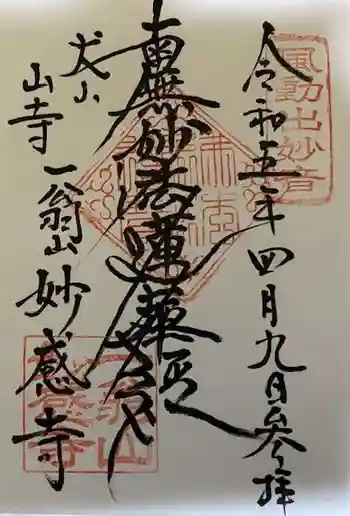 風動出妙音
令和五年四月九日参拝
南無妙法蓮華経
犬山
山寺
一翁山妙感寺